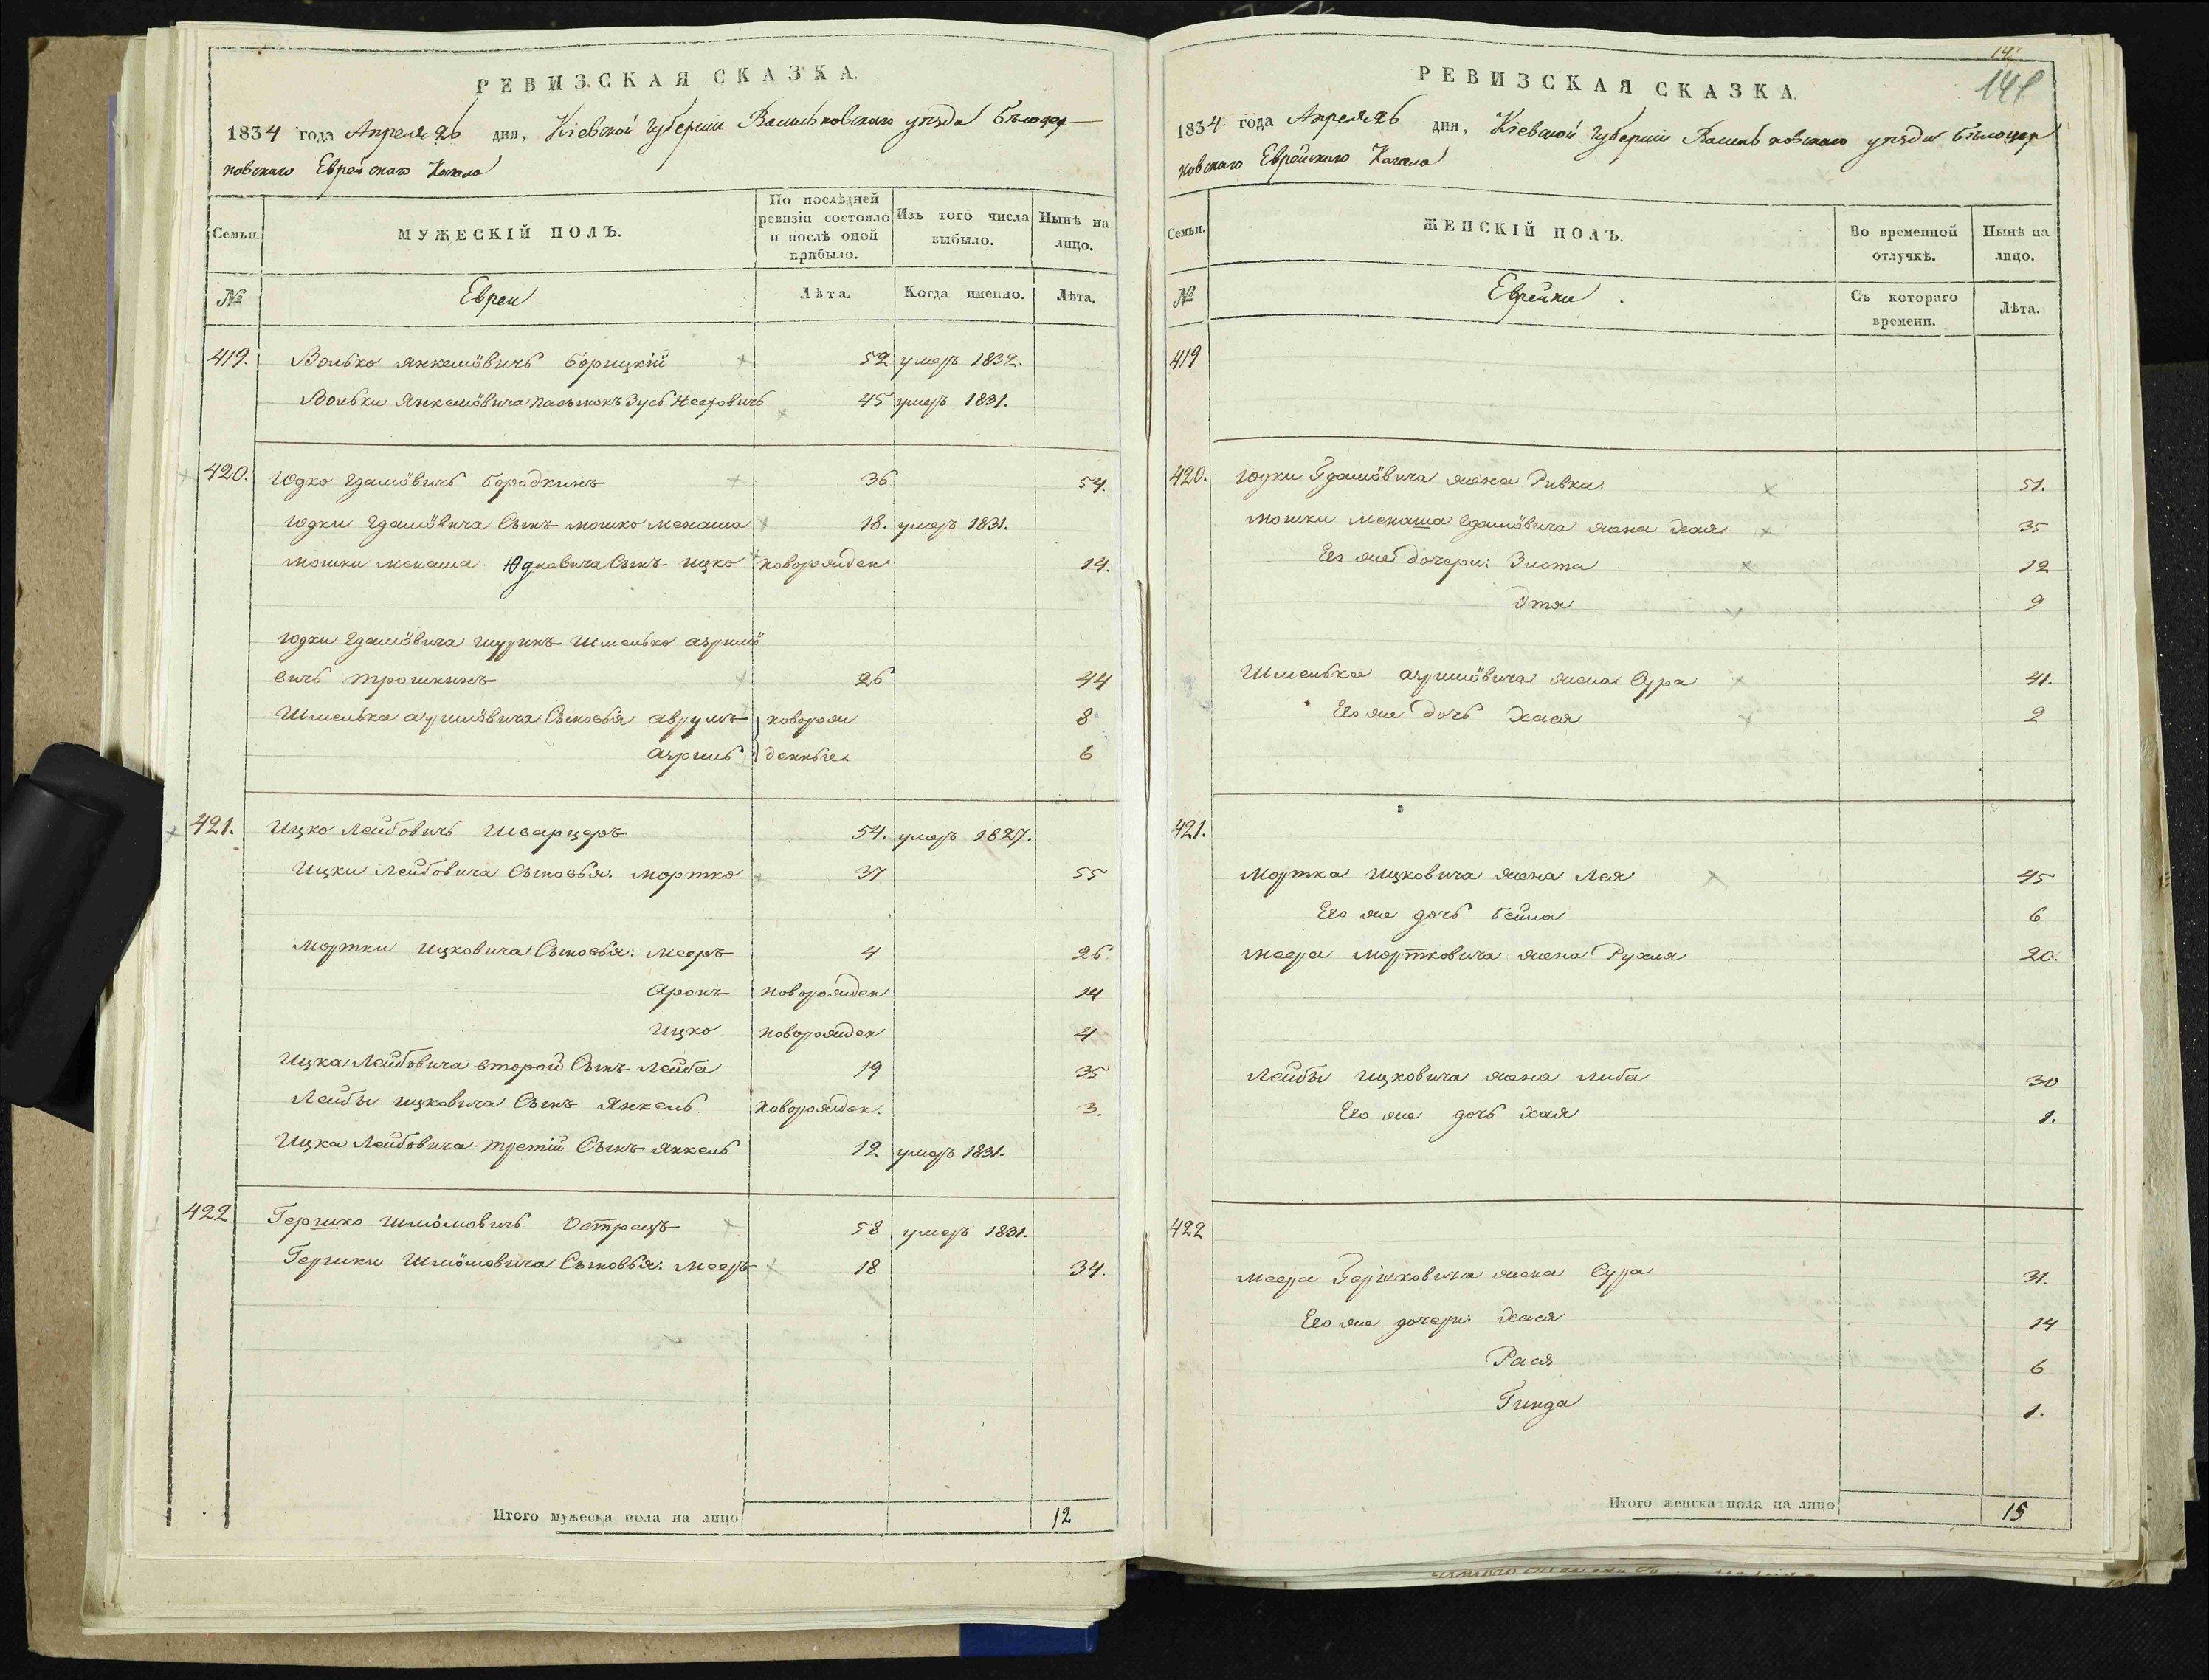 РЕВИЗСКАЯ СКАЗКА.
1834 года Апреля 26 дня, Кіевской Губерніи Васильковскаго уѣзда Бѣлоцер-
ковскаго Еврейскаго Кагала
Семьи.
МУЖЕСКІЙ ПОЛЪ.
По послѣдней ревизіи состояло и послѣ оной прибыло.
Изъ того числа выбыло.
Нынѣ на лицо.
№
Евреи
Лѣта.
Когда именно.
Лѣта.
419. Волько Янкелёвичъ Борицкій 52 умеръ 1832.
Вольки Янкелёвича пасынокъ Зусь 45 умеръ 1831.
420. Юдко Бородкинъ 36 54.
Юдки Сынъ Мошко Менаша 18. умеръ 1831.
Мошки Менаша Юдковича Сынъ Ицко новорожден 14.
Юдки шуринъ Шмелько Азрилё
вичъ Трошкинъ 26 44
Шмелька Азрилёвича Сыновья Аврумъ новорож 8
Азриль денные 6
421. Ицко Лейбовичъ Шварцеръ 54. умеръ 1827.
Ицки Лейбовича Сыновья: Мортко 37 55
Мортки Ицковича Сыновья: Мееръ 4 26
Аронъ новорожден 14
Ицко новорожден 4
Ицка Лейбовича второй Сынъ Лейба 19 35
Лейбы Ицковича Сынъ Янкель новорожден. 3.
Ицка Лейбовича третій Сынъ Янкель 12 умеръ 1831.
422 Гершко Шлёмовичъ Острецъ 58 умеръ 1831.
Гершки Шлёмовича Сыновья: Мееръ 18 34.
Итого мужеска пола на лицо 12
141
РЕВИЗСКАЯ СКАЗКА.
1834 года Апреля 26 дня, Кіевской Губерніи Васильковскаго уѣзда Бѣлоцер
ковскаго Еврейскаго Кагала
Семьи.
ЖЕНСКІЙ ПОЛЪ.
Во временной отлучкѣ.
Нынѣ на лицо.
№
Еврейки.
Съ котораго времени.
Лѣта.
419
420. Юдки жена Ривка 51.
Мошки Менаша жена Хая 35
Его же дочери: Злота 12
Этя 9
Шмелька Азрилёвича жена Сура 41.
Его же дочь Хася 2
421.
Мортка Ицковича жена Лея 45
Его же дочь Бейла 6
Меера Мортковича жена Рухля 20.
Лейбы Ицковича жена Либа 30
Его же дочь Хая 1.
422
Меера Гершковича жена Сура 31.
Его же дочери: Хася 14
Рася 6
Гинда 1.
Итого женска пола на лицо 15